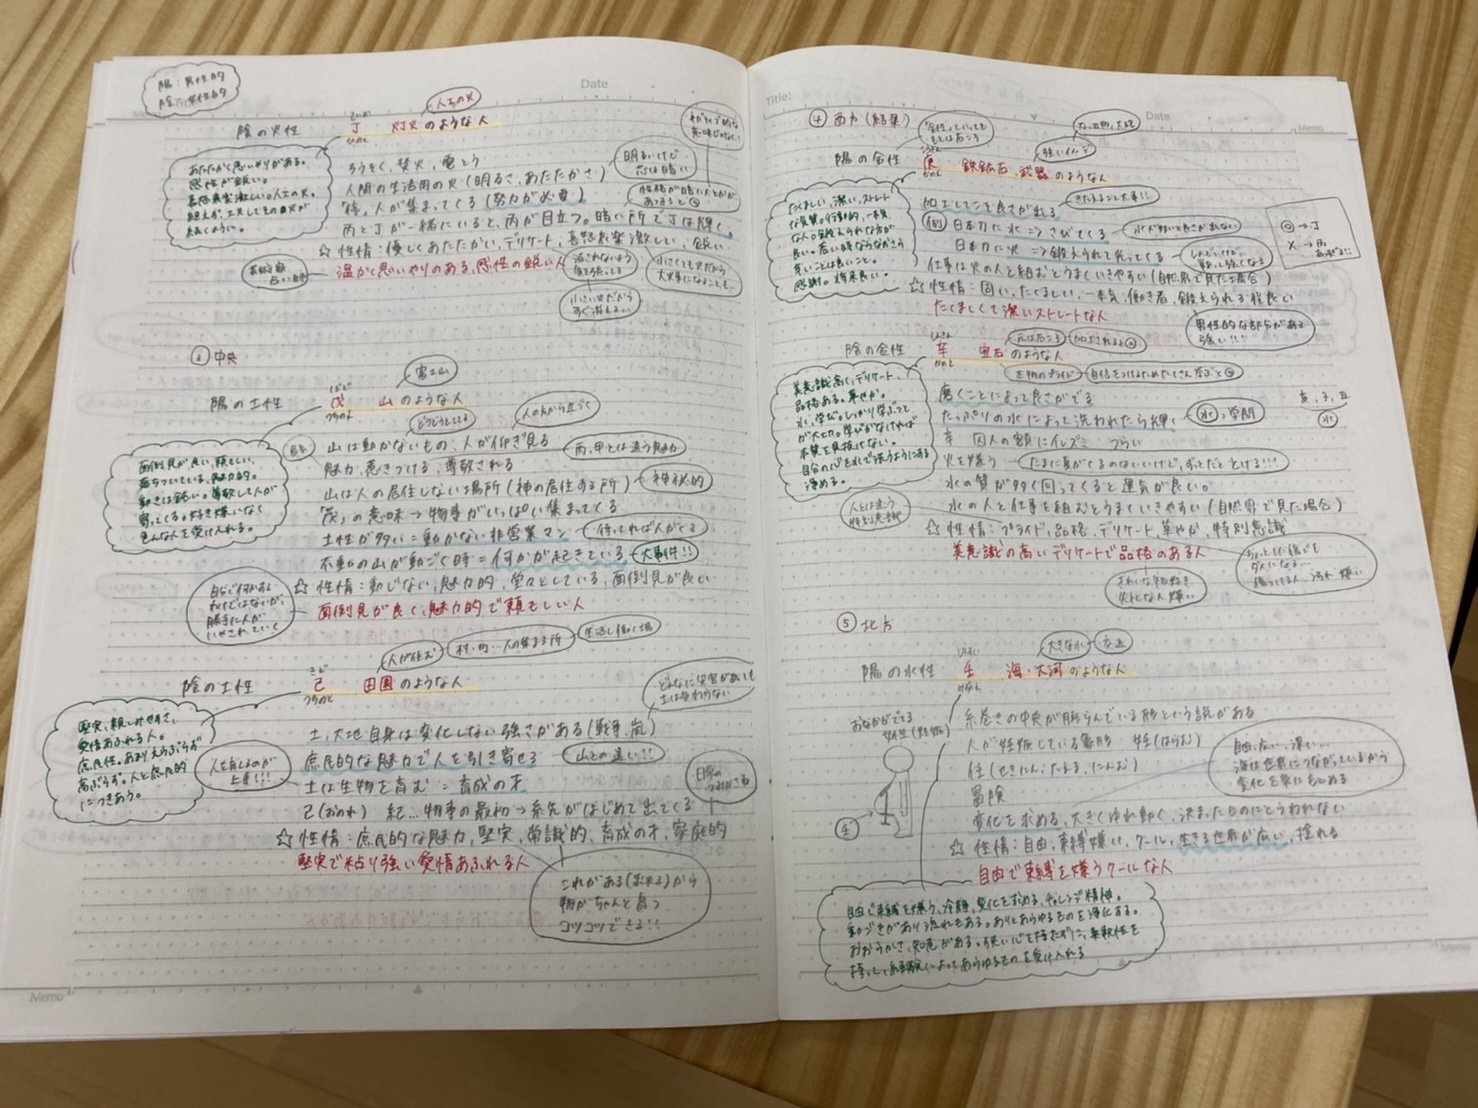 陽:男性的
陰:女性的
Date
陰の火性
丁
ひのと
灯火のような人
人工の火
あたたかく思いやりがある。
感性が鋭い。
喜怒哀楽激しい。人工の火。
ろうそく、焚火、電とう
人間の生活用の火(明るさ、あたたかさ)
「待」人が集まってくる(努力が必要)
丙と丁が一緒にいると、丙が目立つ。暗い所で丁は輝く。
☆性情:優しくあたたかい、デリケート、喜怒哀楽激しい、鋭い
温かく思いやりのある、感性の鋭い人
明るいけど
芯は暗い
小さい火だから
すぐ消える…
小さくても火だから
大火事になることも…
③中央
陽の土性
戊
つちのえ
山のような人
富士山
どうどうとしてる
人の方から近づく
面倒見が良い、頼もしい、
落ちついている、魅力的。
動きは鈍い。尊敬して人が
寄ってくる。好き嫌いなく
色んな人を受け入れる。
山は動かないもの、人が仰ぎ見る
丙、甲とは違う魅力
魅力、惹きつける、尊敬される
山は人の居住しない場所(神の居住する所)
神秘的
「茂」の意味→物事がいっぱい集まってくる
土性が多い=動かない非営業マン
待ってれば人がくる
不動の山が動ごく時=何かが起きている
大事件!!
☆性情:動じない、魅力的、堂々としている、面倒見が良い
面倒見が良く、魅力的で頼もしい人
自らで何かある
わけではないが、
勝手に人が
いかされていく
陰の土性
己
つちのと
田園のような人
人が住む
村・町…人の集まる所
生活し働く場
どんなに災害があっても
土は変わらない
堅実、親しみやすさ、
愛情あふれる人。
庶民性。
高ぶらず。人と庶民的
につきあう。
土、大地自身は変化しない強さがある(戦争、嵐)
庶民的な魅力で人を引き寄せる
山との違い!!
土は生物を育む=育成の才
己(おのれ) 紀…物事の最初→糸先がはじめて出てくる
☆性情:庶民的な魅力、堅実、常識的、育成の才、家庭的
堅実で粘り強い愛情あふれる人
人を育てるのが
上手!!!
これがある(おれる)から
物がちゃんと育つ
コツコツできる!!
Memo
Title:
Date
Memo
④西方(結集)
陽の金性
庚
かのえ
鉄鉱石、武器のような人
強いイメージ
たくましい、潔い、ストレート
な気質。行動的、一本気
な人。鍛えられた方が
良い。若い時ならなおさら
良いことは良いこと。
感謝。将来良い。
加工してこそ良さが出る
きたえること大事!!
(例)日本刀に水⇒さびてくる
水が多いと良さが出ない
日本刀に火⇒鍛えられて光ってくる
仕事は火の人と組むとうまくいきやすい(自然界で見た場合)
☆性情:固い、たくましい、一本気、働き者、鍛えられる程良い
たくましくて潔いストレートな人
男性的な部分がある
強い!!!
陰の金性
辛
かのと
宝石のような人
元は石ころ
美意識高く、デリケート、
品格ある。華やか。
水、学び。しっかり学ぶこと
が大切。学びがなければ
本質を見抜けない。
自分の心を水で洗うようにある
浄める。
磨くことによって良さがでる
たっぷりの水によって洗われたら輝く
水→学問
亥、子、丑
水
辛 囚人の額にイレズミ つらい
火を嫌う
たまに夏がくるのはいいけど、ずっとだととける!!!
水の質が多く回ってくると運気が良い。
水の人と仕事を組むとうまくいきやすい(自然界で見た場合)
☆性情:プライド、品格、デリケート、華やか、特別意識
美意識の高いデリケートで品格のある人
人とは違う
特別意識
きれいな物好き
⑤北方
陽の水性
壬
みずのえ
海・大河のような人
大きな水
糸巻きの中央が膨らんでいる形という説がある
人が妊娠している象形 妊(はらむ)
任(せきにん、たえる、にんむ)
冒険
変化を求める、大きくゆれ動く、決まったものにとらわれない
☆性情:自由、束縛嫌い、クール、生きる世界が広い、揺れる
自由で束縛を嫌うクールな人
自由、広い、深い…
海は世界につながっているから
変化を常にもとめる
自由で束縛を嫌う、冷静、変化を求める、チャレンジ精神。
動ごきがあり流れもある。ありとあらゆるものを浄化する。
おおらかさ、知恵がある。狭い心を持たずに、柔軟性を
持つ。経験によってあらゆるものを受け入れる
Memo